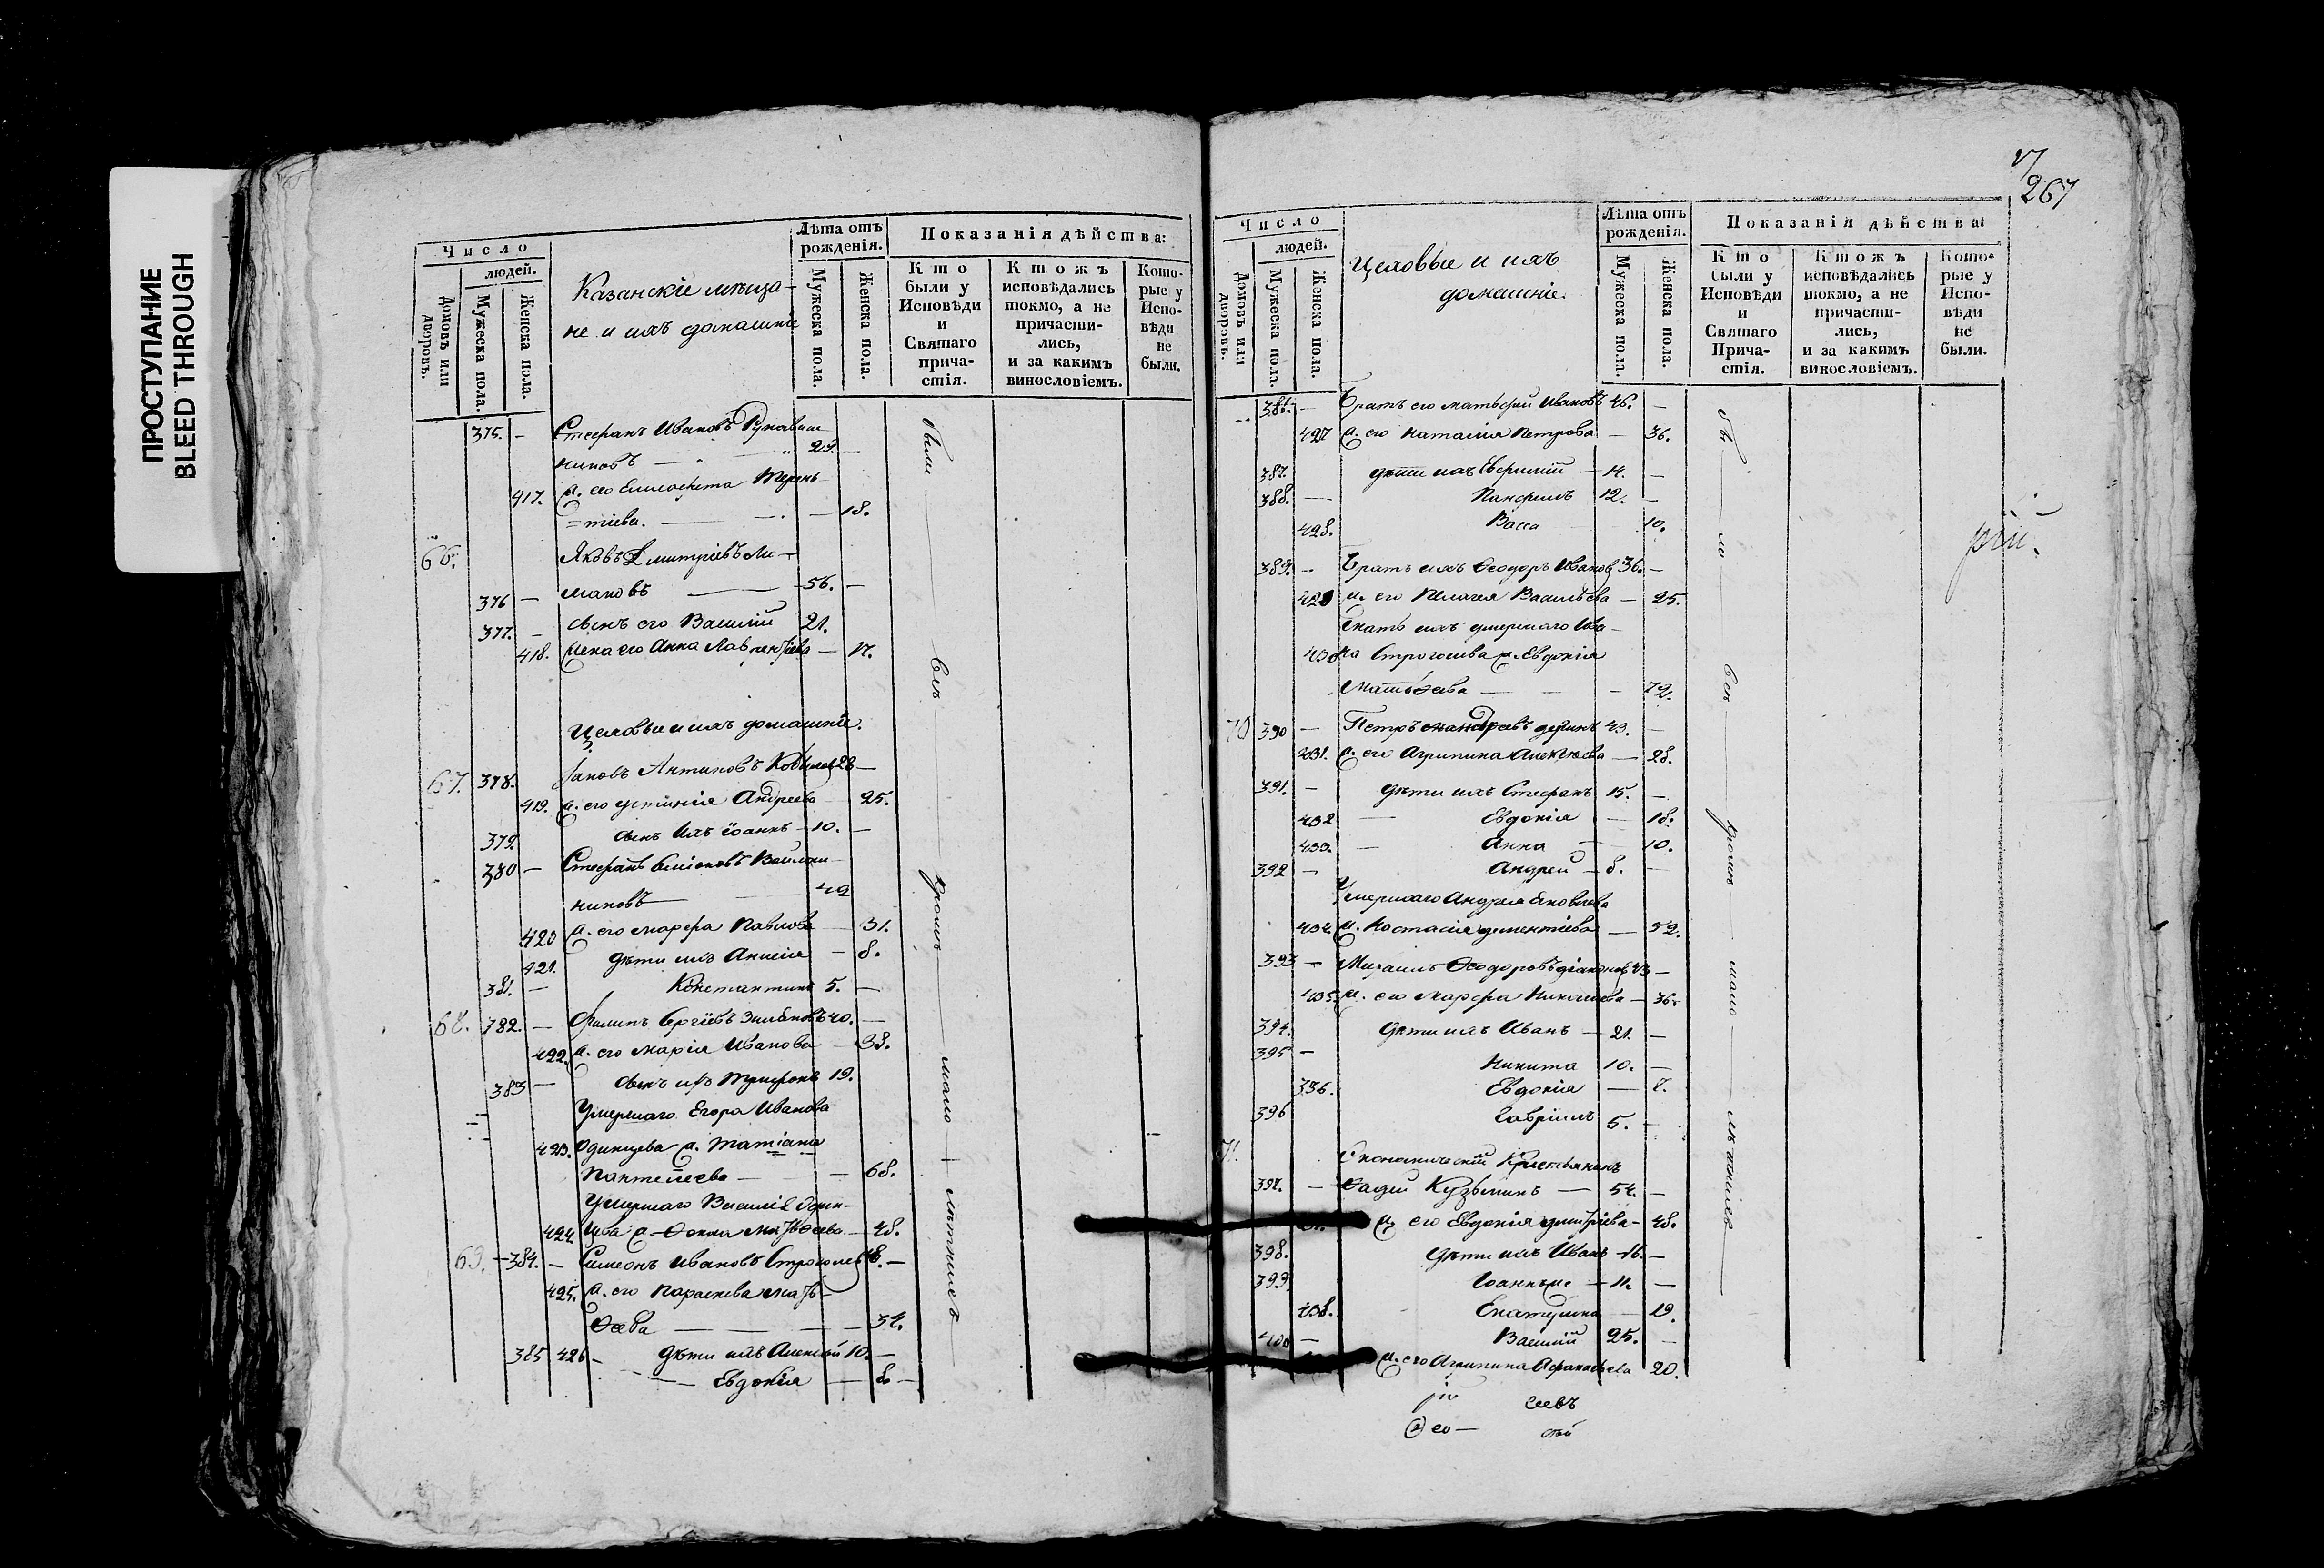 ПРОСТУПАНИЕ
BLEED THROUGH
Число
людей.
Домовъ или дворовъ.
Мужеска пола.
Женска пола.
Казанскіе мѣща-
не и ихъ домашніе
Лѣта отъ рожденія.
Мужеска пола.
Женска пола.
Показанія дѣйства:
Кто были у Исповѣди и Святаго причастія.
Ктожъ исповѣдались токмо, а не причастились, и за какимъ винословіемъ.
Которые у Исповѣди не были.
375. — Стефанъ Ивановъ Рукавиш-
никовъ — 29. —
417. ж. его Елисавета Терень-
=тіева. — 18.
66. Яковъ Дмитріевъ Ли-
376 — мановъ — 56. —
377. — сынъ его Василій 21.
418. жена его Анна Лаврентіева — 17.
Цеховые и ихъ домашніе.
67. 378. Іаковъ Антиповъ 28 —
419. ж. его Устинія Андреева 25.
379. сынъ Ихъ Іоаннъ — 10. —
380 — Стефанъ Симоновъ Войлош-
никовъ — 42
420 ж. его Марфа Павлова — 31.
421. дѣти ихъ Анисія — 8.
381. — Констант инъ 5. —
68. 782. — Филипъ Сергіевъ 40. —
422. ж. его Марія Иванова — 38.
383 — сынъ ихъ Трифонъ 19.
Умершаго Егора Иванова
423. Одинцева ж. Татіана
Пантелеева — 68.
Умершаго Василія Один-
424. цева ж. Ѳекла Матвѣева — 48.
69. — 384. — Симеонъ Ивановъ —
425. ж. его Параскева Матв-
ѣева — 34.
385 426 — дѣти ихъ Алексѣй 10. —
— Евдокія — 8. —
были — всѣ — кромѣ — мало — лѣтнихъ
267
Число
людей.
Домовъ или дворовъ.
Мужеска пола.
Женска пола.
Цеховые и ихъ
домашніе.
Лѣта отъ рожденія.
Мужеска пола.
Женска пола.
Показанія дѣйства:
Кто были у Исповѣди и Святаго Причастія.
Ктожъ исповѣдались токмо, а не причастились, и за какимъ винословіемъ.
Которые у Исповѣди не были.
386. — Братъ его Матвѣй Ивановъ 46. —
427 ж. его Наталія Петрова — 36.
387. дѣти ихъ Евфимій — 14. —
388. — Панфилъ 12. —
428. Васса 10.
389. — Братъ ихъ Ѳеодоръ Ивановъ 36. —
429 ж. его Пелагея Васильева — 25.
Мать ихъ умершаго Ива-
430 на ж. Евдокія
Матвѣева — 72.
70 390 — Петръ 43. —
431. ж. его Агрипина Алексѣева — 28.
391. — дѣти ихъ Стефанъ 15. —
432 — Евдокія — 18.
433. — Анна — 10.
392 — Андрей — 8. —
Умершаго Андрея Яковлева
434. ж. Настасія Дементіева — 52.
393 — Михаилъ Ѳеодоровъ 43 —
435. ж. его Марфа Николаева — 36.
394. дѣти ихъ Иванъ — 21. —
395 — Никита 10. —
336. Евдокія —
396 Гавріилъ 5. —
71. Економическій Крестьянинъ
397. — Ѳадей Кузьминъ — 54. —
ж. его Евдокія Дмитріева — 48.
398. дѣти ихъ Иванъ — 16. —
399. Іоаннъ же — 11. —
438. Екатерина — 19.
400 — Василій 25. —
ж. его Агрипина Афанасьева 20.
всѣ — кромѣ — мало — лѣтнихъ